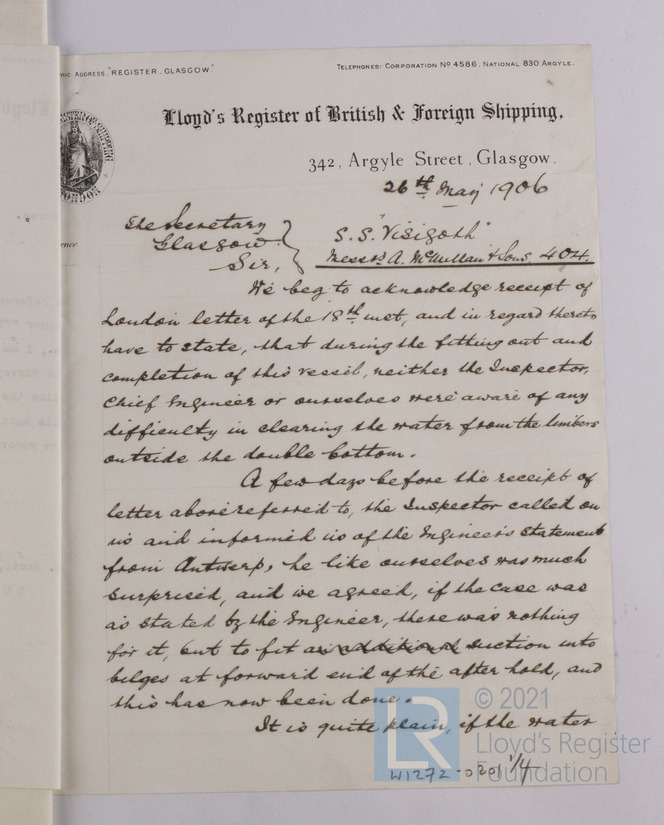 HIC ADDRESS, "REGISTER, GLASGOW."
TELEPHONES: CORPORATION No 4586. NATIONAL 830 ARGYLE.
Lloyd's Register of British & Foreign Shipping,
342, Argyle Street, Glasgow.
26th May 1906
The Secretary
Glasgow.
Sir,
S.S. "Visigoth"
Messrs A. McMillan & Sons 404.
We beg to acknowledge receipt of
London letter of the 18th inst, and in regard thereto
have to state, that during the fitting out and
completion of this vessel, neither the Inspector,
Chief Engineer or ourselves were aware of any
difficulty in clearing the water from the limbers
outside the double bottom.
A few days before the receipt of
letter above referred to, the Inspector called on
us and informed us of the Engineer's statement
from Antwerp, he like ourselves was much
surprised, and we agreed, if the case was
as stated by the Engineer, there was nothing
for it, but to fit an additional suction into
bilges at forward end of the after hold, and
this has now been done.
It is quite plain, if the water
W1272-0201 1/4
LR
© 2021
Lloyd's Register
Foundation
LONDON
ence